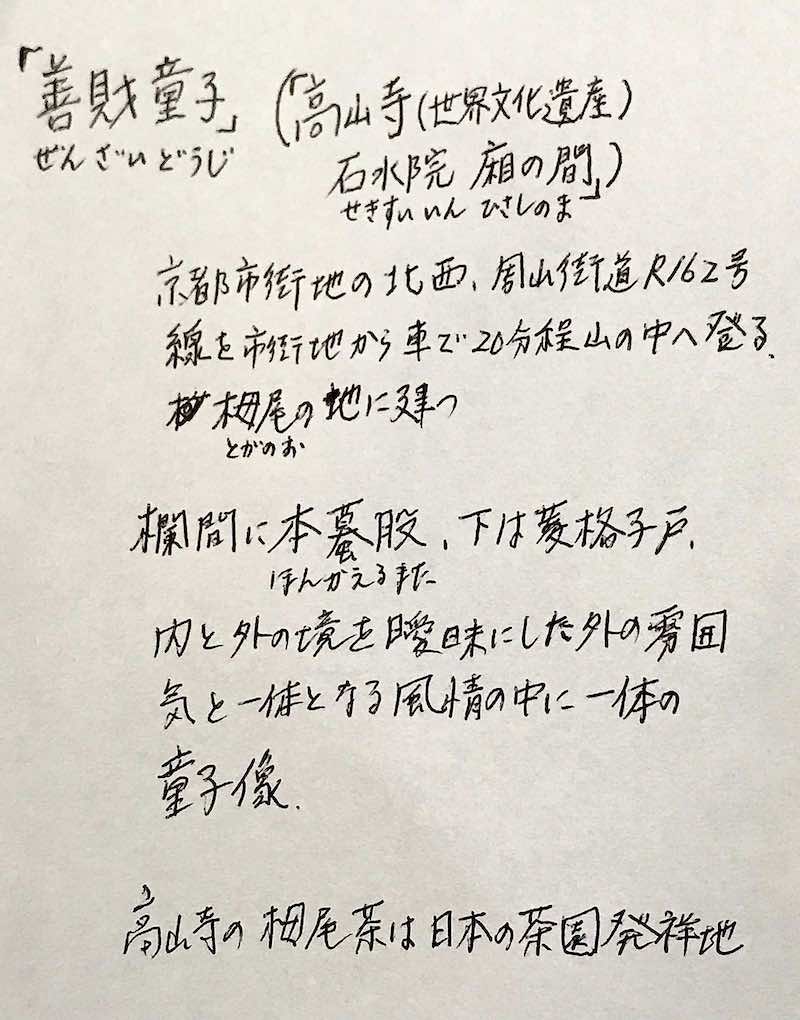 「善財童子」(「高山寺(世界文化遺産)
ぜんざいどうじ
石水院 廂の間」)
せきすいいん ひさしのま
京都市街地の北西、周山街道R162号
線を市街地から車で20分程山の中へ登る、
栂尾の地に建つ
とがのお
欄間に本蟇股、下は菱格子戸、
ほんがえるまた
内と外の境を曖昧にした外の雰囲
気と一体となる風情の中に一体の
童子像、
高山寺の栂尾茶は日本の茶園発祥地